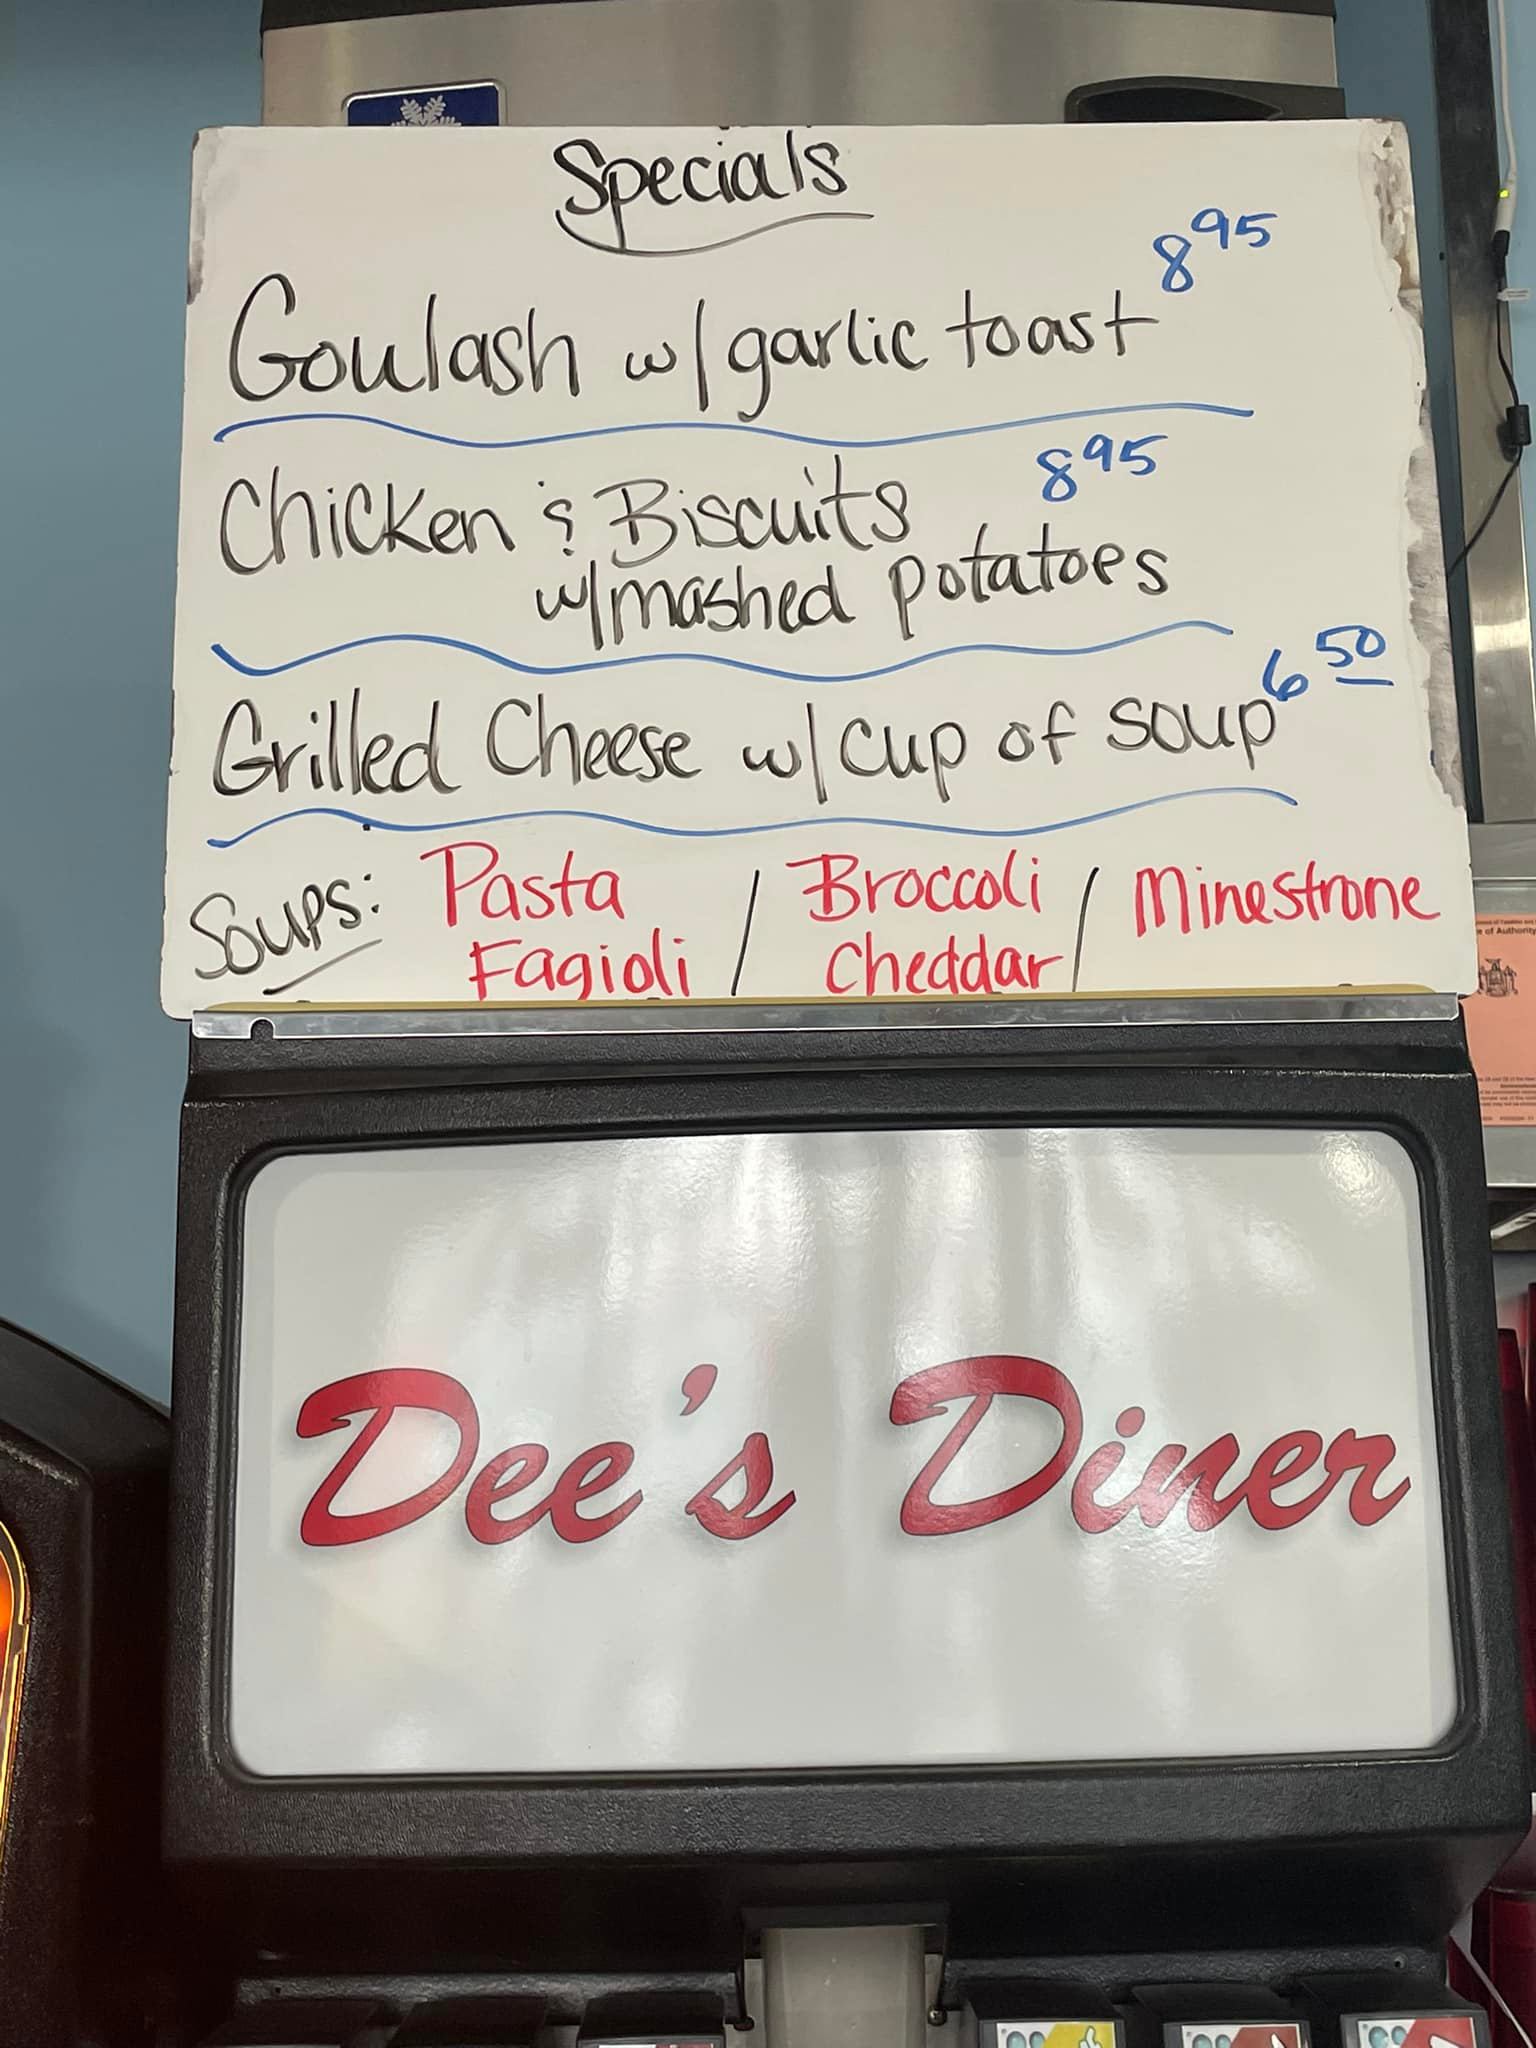 Specials
Goulash w/ garlic toast 8 95
Chicken & Biscuits 8 95
w/ mashed potatoes
Grilled Cheese w/ cup of soup 6 50
Soups: Pasta / Broccoli / Minestrone
Fagioli Cheddar
e of Authority
Dee's Diner